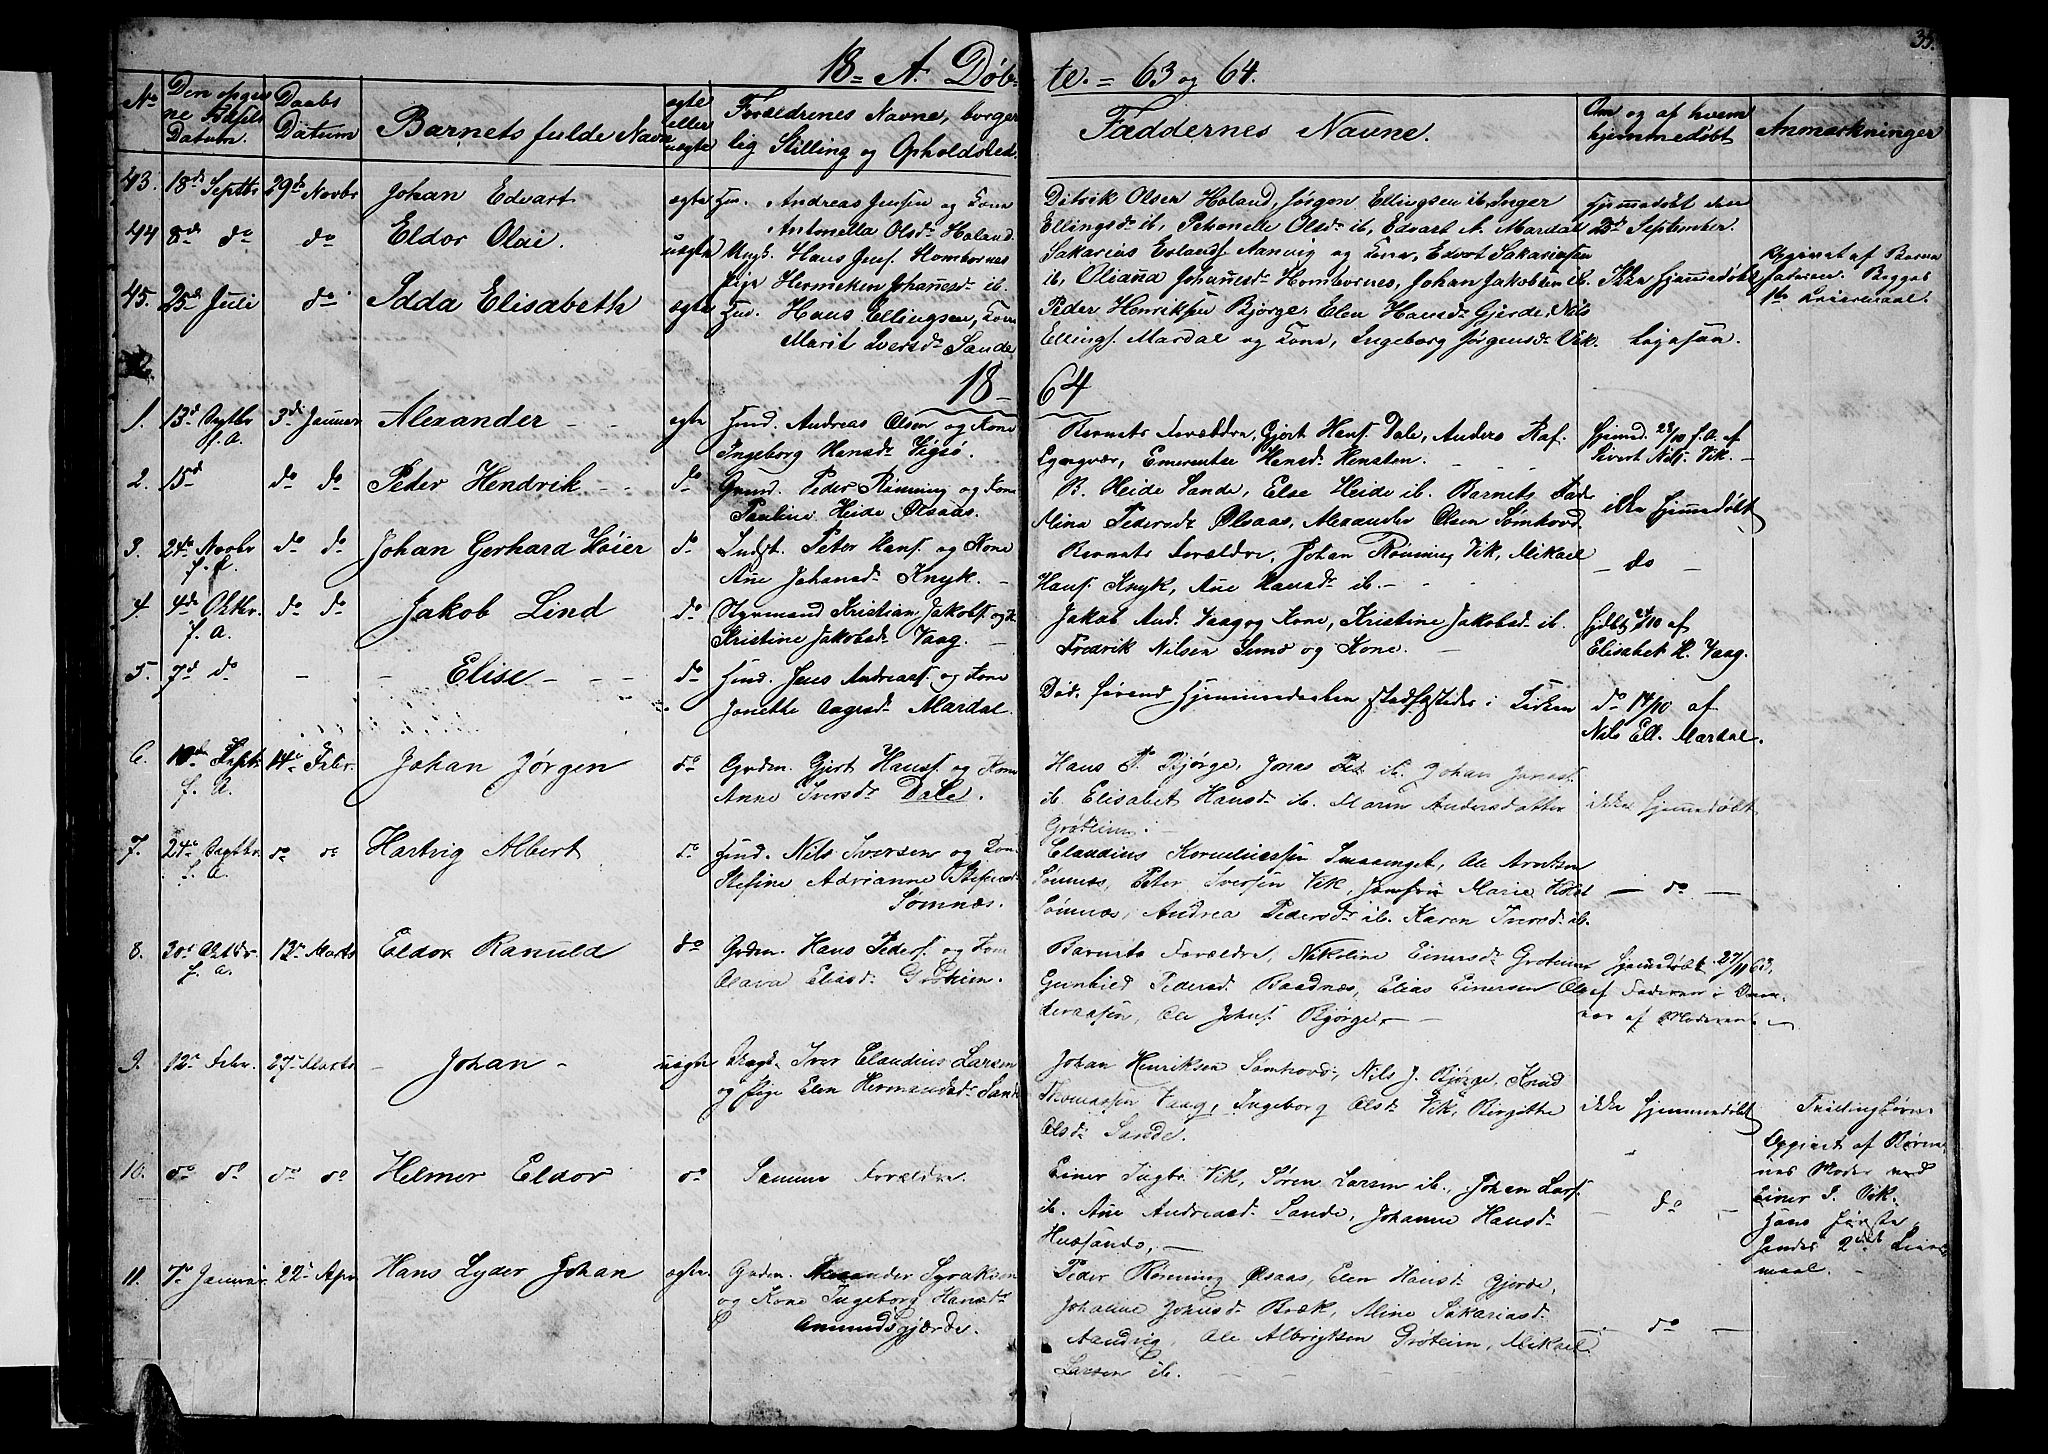 35.
18 = A. Døb= te. = 63 og 64.
No
Den opgiv
ne Fødsels
Datum.
Daabs
Datum
Barnets fulde Navn
egte
eller
uegte
Forældrenes Navne, borger
lig Stilling og Opholdsted.
Faddernes Navne.
Om og af hvem
hjemmedøbt
Anmærkninger
43. 18de Septbr 29de Novbr Johan Edvart egte Hus. Andreas Jensen og Kone
Antonetta Olsdr Holand.
Ditrik Olsen Holand, Jørgen Ellingsen ib, Inger
Ellingsdr ib, Petronelle Olsdr ib, Edvart A. Mardal
Hjemmedøbt den
September.
44 8de do do Eldor Olai. uegte Ungk. Hans Jens. Hombornes
Pige Hermiken Johanesdr ib.
Sakarias Aanvig og Kone, Edvort Sakariasen
ib, Oliana Johanesdr Hombornes, Johan Jakobsen ib.
Ikke hjemmedøbt
Opgivet af Barne
faderen. Begges
1ste Leiermaal.
45. 25de Juli do Idda Elisabeth egte Hus. Hans Ellingsen, Kone
Marit Iversdr Sande
Peder Henriksen Bjørge, Elen Hansdr Gjerde, Nils
Ellings. Mardal og Kone, Ingeborg Jørgensdr Vik.
Ligesaa.
18 64
1. 13d f. A. 3di Januar Alexander - - egte Husd. Andreas Olsen og Kone
Ingeborg Hansdr Vigsø.
Barnets Forældre, Gjert Hans. Dale, Anders Raf.
Lyngvær, Emerentse Hansdr Hensten. - - -
Hjemmed. 23/10 f. A. af
Sivert Nils. Vik. -
2. 15d do do Peter Hendrik - - do Grund. Peder Rønning og Kone
Pauline Heide Ølsaas.
B. Heide Sande, Else Heide ib. Barnets Fad
Mina Pedersdr Ølsaas, Alexander Olsen Sømhovd.
ikke hjemmedøbt
3. 24de Novbr f. A. do do Johan Gerhard Høier do Indst. Peter Hans. og Kone
Ane Johansdr Knyk. -
Barnets Forældre, Johan Rønning Vik, Mikael
Hans. Knyk, Ane Hansdr ib. -
- do -
4. 4de Oktbr. f. A. do do Jakob Lind do Styrmand Kristian Jakobs. og K.
Kristine Jakobsdr Vaag. -
Jakob And. Vaag og Kone, Kristine Jakobsdr ib.
Fredrik Nilsen Sund og Kone. -
Hjdbt /10 af
Elisabet H. Vaag.
5. 7d do - - Elise - - - do Husd. Jens Andreas. og Kone
Jonette Aagesdr Mardal.
Død førend Hjemmedaaben stadfæstedes i Kirken
do 14/10 af
Nils Ell. Mardal.
6. 10de Septr. f. A. 14de Febr. Johan Jørgen do Grdm. Gjert Hans. og Kone
Anne Iversdr Dale.
Hans P. Bjørge, Jonas Ped. ib. Johan Jonas.
ib. Elisabet Hansdr ib. Maren Andersdatter
Grøteim. -
ikke hjemmedøbt
7. 24de f. A. do do Hartvig Albert do Husd. Nils Iversen og Kone
Stefine Adrianne Stefensdr
Sømnæs.
Claudius Korneliussen Smaavaget, Ole Arntsen
Sømnæs, Peter Iversen Vik, Jomfru Marie Holst
Sømnæs, Andrea Pedersdr ib. Karen Iversdr ib.
- do -
8. 30te Oktbr. f. A. 13de Marts Eldor Ranuld do Grdm. Hans Peders. og Kone
Olava Eliasdr Grøteim.
Barnets Forældre, Nikoline Einersdr Groteim
Gunhild Pedersdr Baadnæs, Elias Einersen Ole
, Ole Johns. Bjørge. -
Hjemmedøbt 27/11 63.
af Faderen i Over-
vær af Moderen. -
9. 12de Febr. 27de Marts - Johan - uegte Ungk. Iver Claudius Larsen
og Pige Elen Hermansdr Sande
Johan Henriksen Sømhovd, Nils J. Bjørge. Knud
Thomassen Vaag, Ingeborg Olsdr Vik, Birgitte
Olsdr Sande.
ikke hjemmedøbt
Tvillingbørn.
Opgivet af Børne-
nes Moder ved
Einer I. Vik.
Hans første,
hendes 2det Leier-
maal. -
10. do do do do Helmer Eldor do Samme Forældre.
Einer Ingbr. Vik, Søren Larsen ib., Johan Lars.
ib. Ane Andreasdr Sande, Johanne Hansdr
Huusande, -
- do -
11. 7de Januar. 22de Apr. Hans Lyder Johan egte. Grdm. Alexander Syraksen
og Kone Ingeborg Hansdr
Amundsgjærde.
Peder Rønning Ølsaas, Elen Hansdr Gjerde,
Johanne Johnsdr Bræk, Mine Sakariasdr
Aandvig, Ole Albrigtsen Grøteim, Mikael
Larsen ib. - - -
- do -